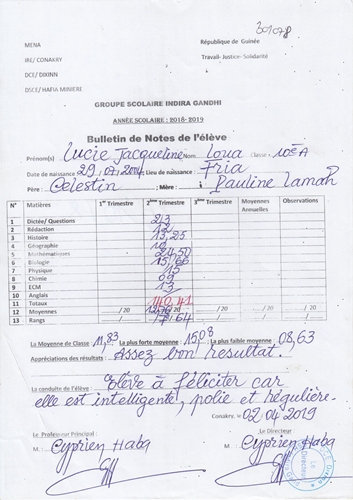 301078
MENA
République de Guinée
IRE/ CONAKRY
Travail- Justice- Solidarité
DCE/ DIXINN
DSEE/ HAFIA MINIERE
GROUPE SCOLAIRE INDIRA GANDHI
ANNÉE SCOLAIRE : 2018- 2019
Bulletin de Notes de l'élève
Prénom(s) Lucie Jacqueline Nom : Loua Classe : 10è A
Date de naissance : 29/07/ Lieu de naissance : Fria
Père : Celestin ; Mère : Pauline Lamah
N° Matières 1er Trimestre 2ème Trimestre 3ème Trimestre Moyennes Annuelles Observations
1 Dictée/ Questions 23
2 Rédaction 12
3 Histoire 13,25
4 Géographie
5 Mathématiques 24,50
6 Biologie 15,66
7 Physique 15
8 Chimie 09
9 ECM 13
10 Anglais
11 Totaux 140,41
12 Moyennes / 20 / 20 / 20 / 20
13 Rangs 17è/64
La Moyenne de Classe : 11,83 La plus forte moyenne : 15,08 La plus faible moyenne : 08,63
Appréciations des résultats : Assez bon resultat.
La conduite de l'élève : Elève à féliciter car
elle est intelligente, polie et régulière.
Conakry, le 02/04/2019
Le Professeur Principal : Le Directeur
M. Cyprien Haba M. Cyprien Haba
Le Directeur